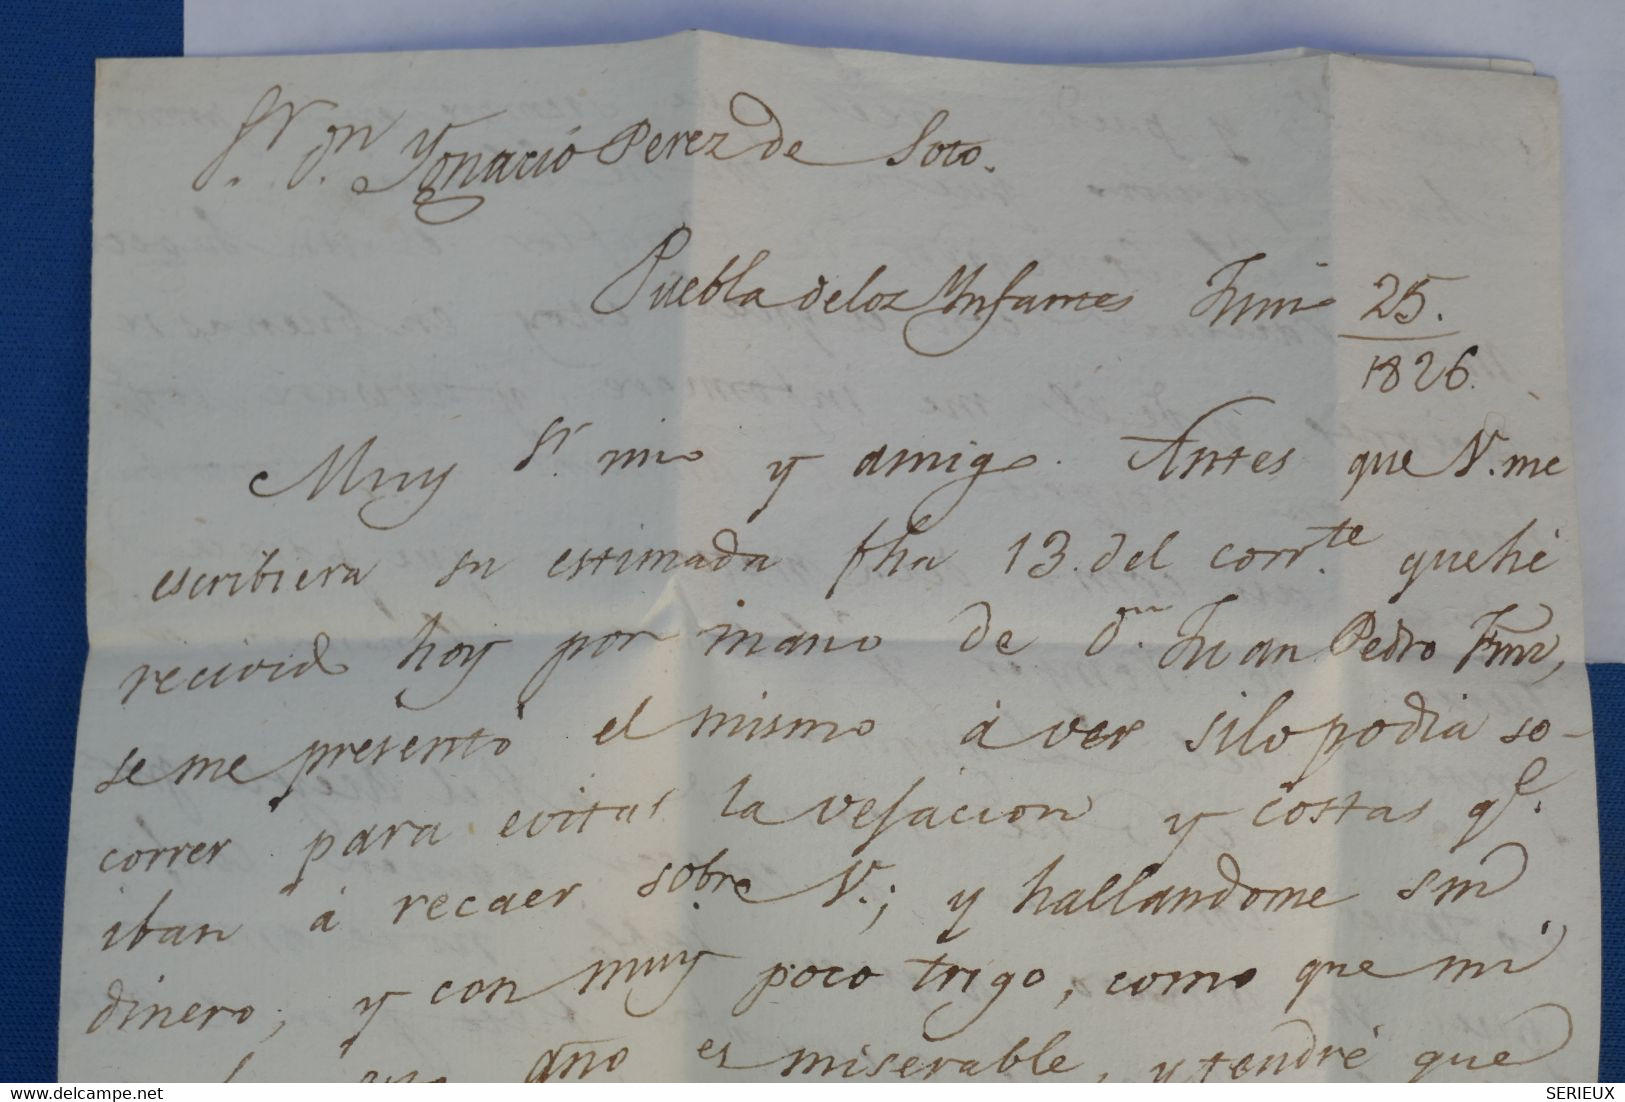 Sr. Dn. Ygnació Perez de Soto.
Puebla delos Ynfantes Juni 25.
1826.
Muy Sr. mio y amigo. Antes que V. me
escribiera su estimada fha 13. del corrte. quehé
recivido hoy por mano de dn. Juan Pedro Frnz,
se me presentó el mismo á ver silopodia so-
correr para evitar la vejacion y costas qe.
iban á recaer sobre V.; y hallandome sin
dinero, y con muy poco trigo, como que mi
año es miserable, y tendré que
SERIEUX